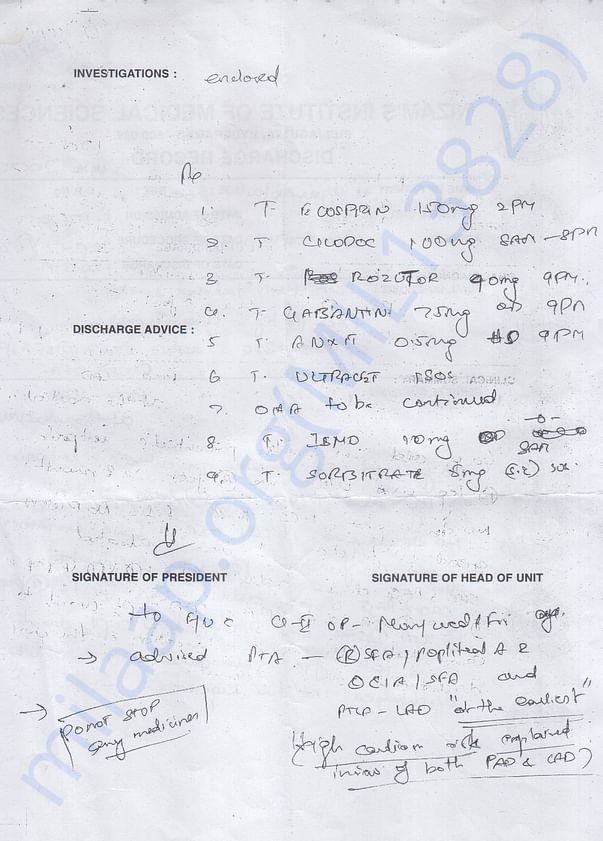 INVESTIGATIONS : enclosed
Rx
1. T. ECOSPRIN 150mg 2PM
2 T. CILODOC 100mg 8AM - 8PM
3 T. ROZUTOR 40mg 9PM.
4. T. GABANTIN 75mg OD 9PM
DISCHARGE ADVICE :
5 T. ANXIT 0.5mg HS 9PM
6 T. ULTRACET SOS
7. OHA to be continued
8 T. ISMO 10mg 8AM
9. T. SORBITRATE 5mg (S.L) SOS
SIGNATURE OF PRESIDENT
SIGNATURE OF HEAD OF UNIT
to OP - Mon, Wed & Fri
→ advised PTA - (R) SFA, popliteal A &
CIA / SFA and
PTCA - LAD "at the earliest"
→ DO NOT STOP any medicines
(High cardiac risk explained
in view of both PAD & CAD)
milaap.org(MIL13828)